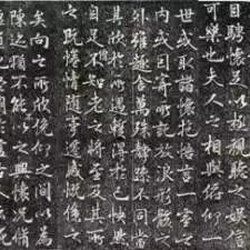 目騁懷足以極視聽之娛信
可樂也夫人之相與俯仰一
世或取諸懷抱悟言一室之
內或因寄所託放浪形骸之
外雖趣舍萬殊靜躁不同當
其欣於所遇暫得於己怏然
自足不知老之將至及其所
之既惓情隨事遷感慨係之
矣向之所欣俛仰之間以為
陳迹猶不能不以之興懷況脩